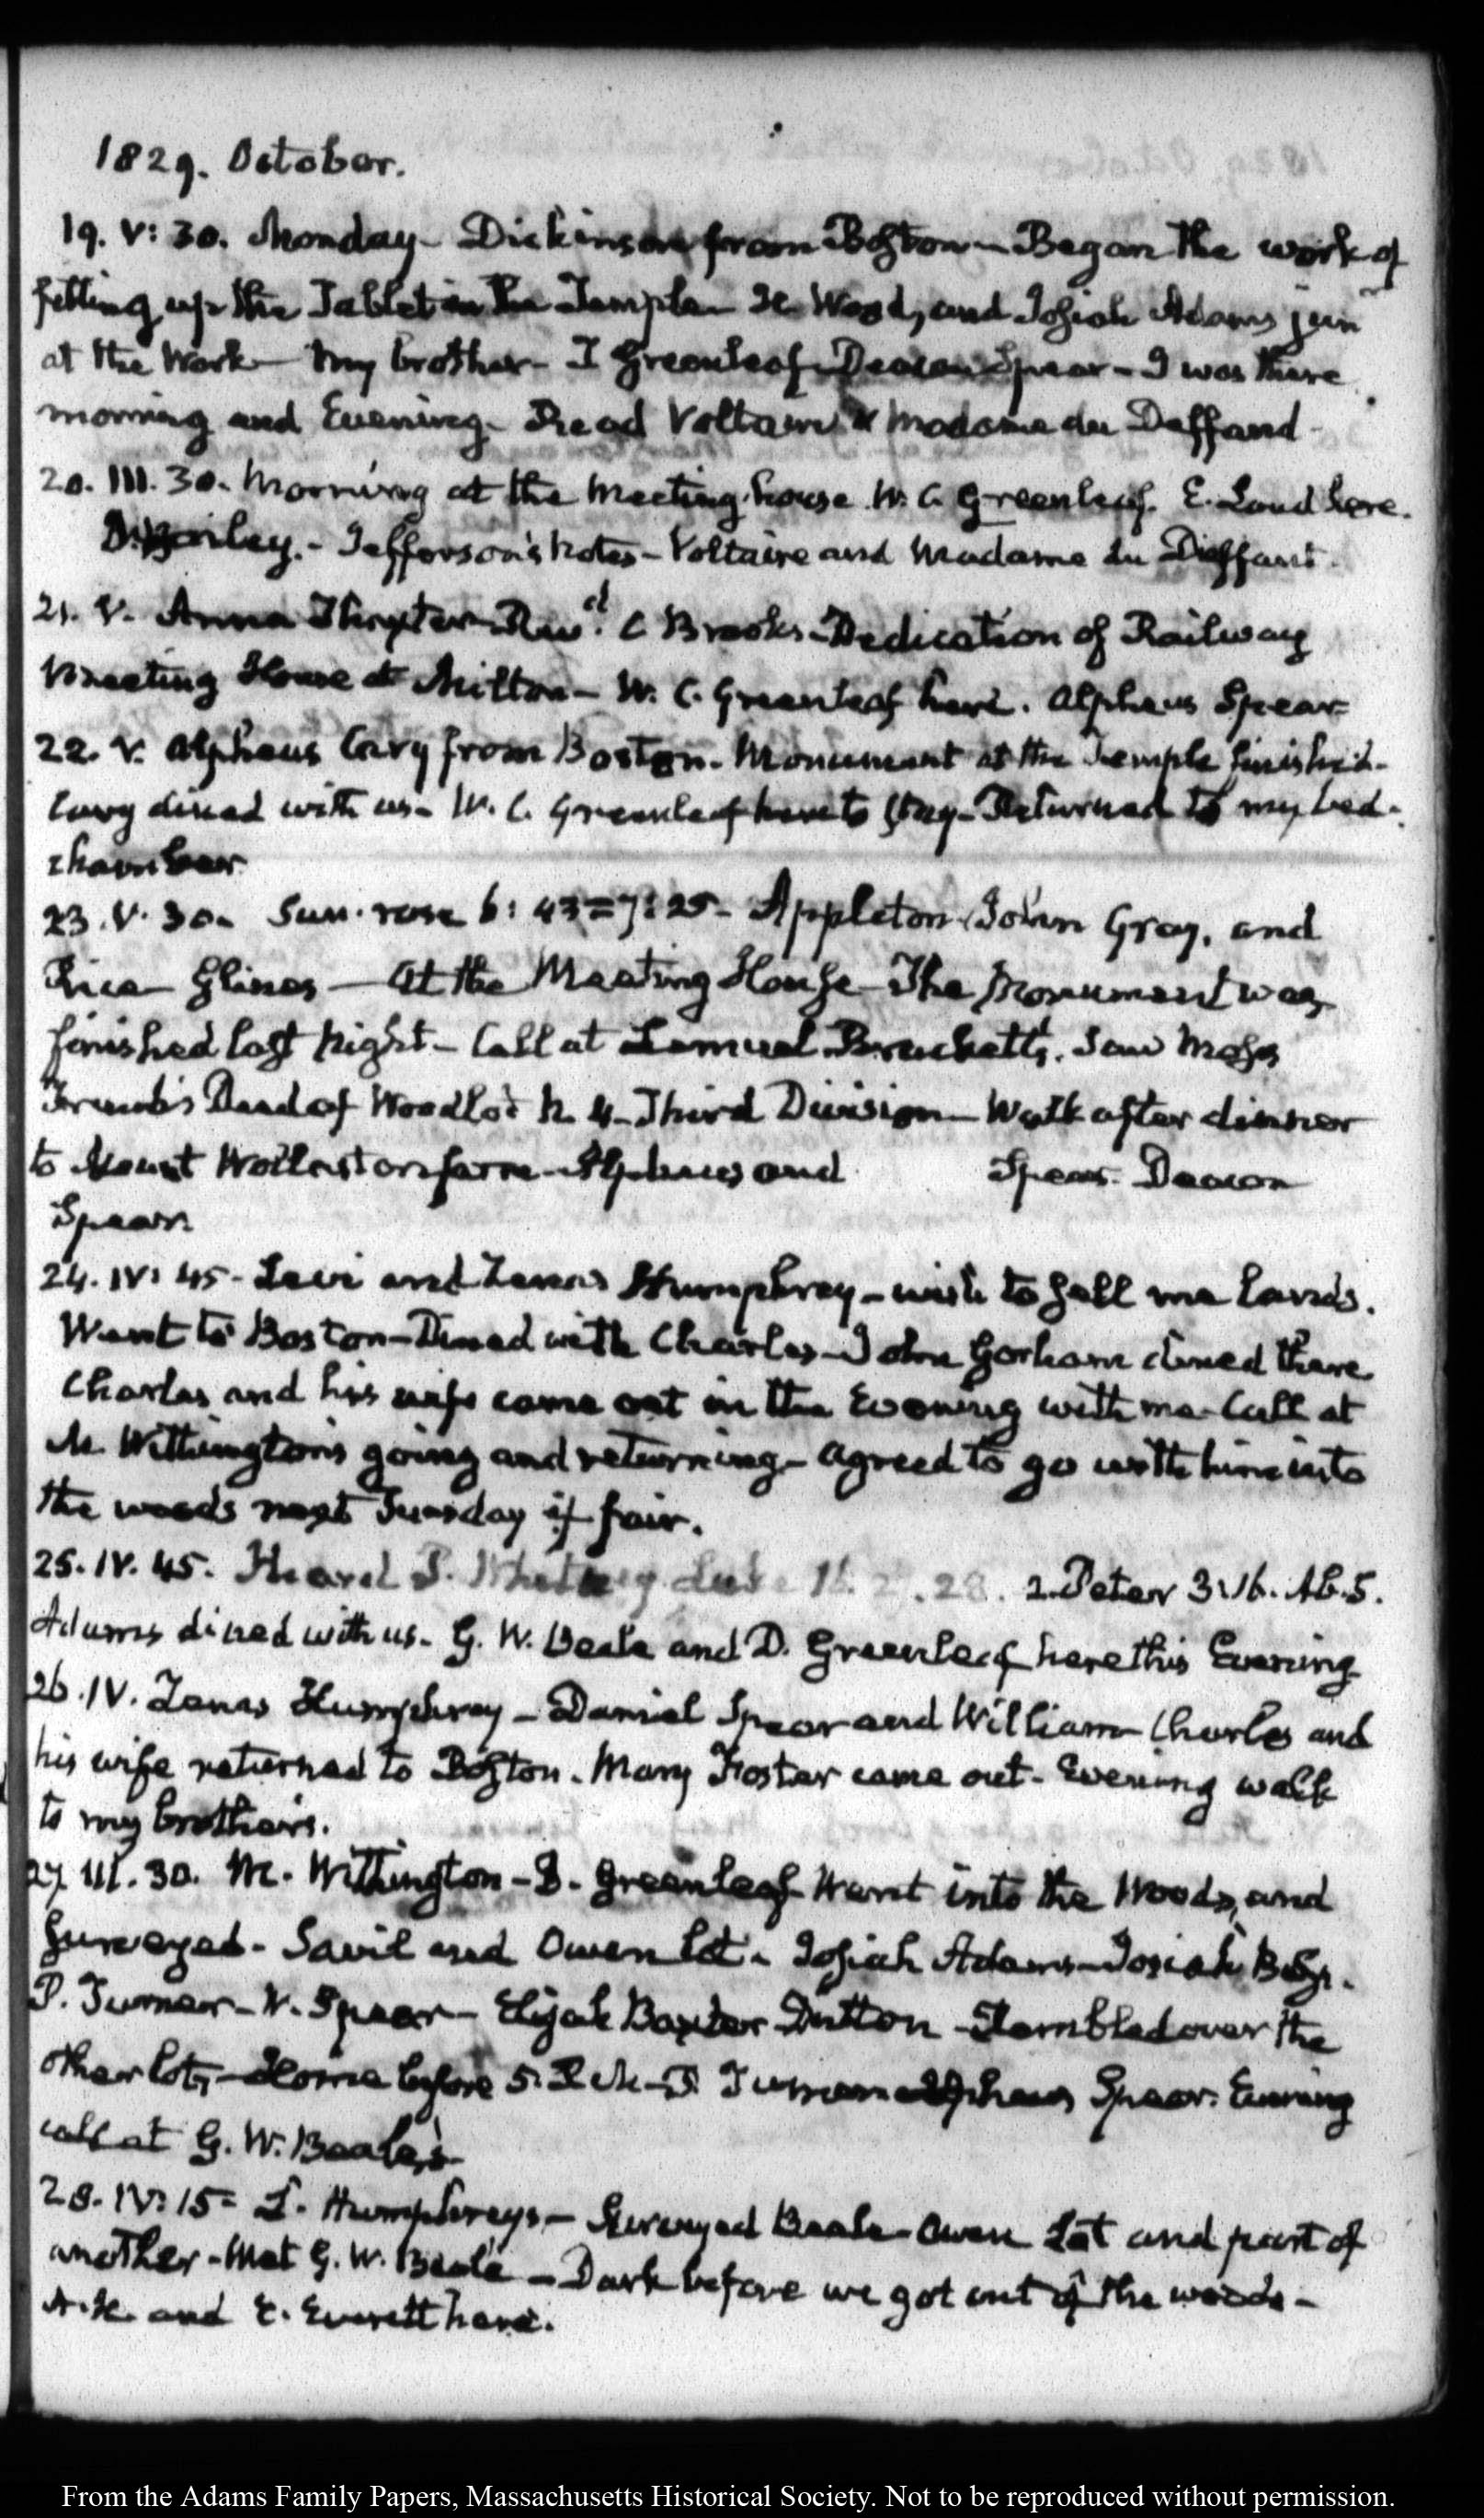 1829. October.
19. V: 30. Monday - Dickinson from Boston - Began the work of
fitting up the Tablet in the Temple - H. Wood, and Josiah Adams jun
at the Work - My brother - T Greenleaf - Deacon Spear - I was there
morning and Evening - Read Voltaire & Madame du Deffand -
20. III. 30. Morning at the Meeting-house W. C. Greenleaf. E. Loud here.
Bailey. - Jefferson's Notes - Voltaire and Madame du Deffant.
21. V. Anna Thaxter - Revd. C Brooks - Dedication of Railway
Meeting House at Milton - W. C. Greenleaf here. Alpheus Spear
22. V. Alpheus Cary from Boston. Monument at the Temple finished -
Cary dined with us - W. C. Greenleaf here to stay - Returned to my bed-
chamber
23. V. 30. Sun rose 6: 43 = 7: 25 - Appleton John Gray, and
Rice Glines - At the Meeting House - The Monument was
finished last Night - Call at Lemuel Brackett's. Saw Moses
French's Deed of Woodlot N. 4 - Third Division - Walk after dinner
to Mount Wollaston farm - Alpheus and Spear. Deacon
Spear.
24. IV: 45 - Levi and Lemas Humphrey - wish to sell me lands.
Went to Boston - Dined with Charles - John Gorham dined there
Charles and his wife came out in the Evening with me - Call at
M. Withington's going and returning - agreed to go with him into
the woods next Tuesday if fair.
25. IV. 45. Heard P. Whitney. Luke 16. 2 . 28. 2. Peter 3. 16. Ab. S.
Adams dined with us - G. W. Beale and D. Greenleaf here this Evening
26. IV. Lemas Humphrey - Daniel Spear and William - Charles and
his wife returned to Boston. Mary Foster came out - Evening walk
to my brother's.
27. III. 30. M. Withington - D. Greenleaf - Went into the Woods, and
Surveyed - Savil and Owen lot - Josiah Adams - Josiah Bass.
P. Turner - W. Spear - Elijah Baxter Dutton - Rambled over the
other lots - Home before 5. P. Turner - Alpheus Spear. Evening
call at G. W. Beale's -
28. IV: 15 = L. Humphreys - Surveyed Beale - Owen Lot and part of
another - Met G. W. Beale - Dark before we got out of the woods -
A. H. and E. Everett here.
From the Adams Family Papers, Massachusetts Historical Society. Not to be reproduced without permission.